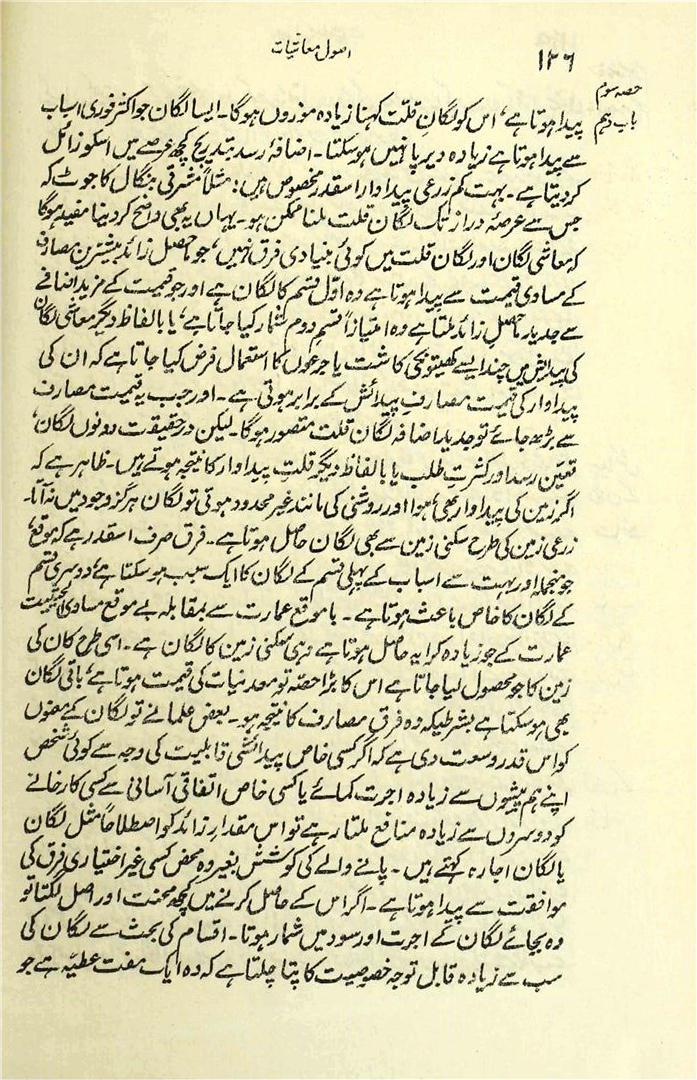 ۱۲۶
اصول معاشیات
حصہ سوم
باب دہم
پیدا ہوتا ہے، اس کو لگانِ قلت کہنا زیادہ موزوں ہوگا۔ ایسا لگان جو اکثر فوری اسباب
سے پیدا ہوتا ہے زیادہ دیر پا نہیں ہو سکتا۔ اضافۂ رسد بتدریج کچھ عرصے میں اسکو زائل
کر دیتا ہے۔ بہت کم زرعی پیداوار اسقدر مخصوص ہیں: مثلاً مشرقی بنگال کا جوٹ کہ
جس سے عرصۂ دراز تک لگان قلت ملنا ممکن ہو۔ یہاں یہ بھی واضح کر دینا مفید ہوگا
کہ معاشی لگان اور لگان قلت میں کوئی بنیادی فرق نہیں، جو حاصل زائد بیشترین مصارف
کے مساوی قیمت سے پیدا ہوتا ہے وہ اوّل قسم کا لگان ہے اور جو قیمت کے مزید اضافے
سے جدید حاصلِ زائد ملتا ہے وہ امتیازاً قسم دوم شمار کیا جاتا ہے، یا بالفاظ دیگر معاشی لگان
کی پیدائش میں چند ایسے کھیتونکی کاشت یا جرعوں کا استعمال فرض کیا جاتا ہے کہ ان کی
پیداوار کی قیمت مصارفِ پیدائش کے برابر ہوتی ہے۔ اور جب یہ قیمت مصارف
سے بڑھ جائے تو جدید اضافہ لگان قلت متصور ہوگا۔ لیکن درحقیقت دونوں لگان،
تعین رسد اور کثرتِ طلب یا بالفاظ دیگر قلتِ پیداوار کا نتیجہ ہوتے ہیں۔ ظاہر ہے کہ
اگر زمین کی پیداوار بھی، ہوا اور روشنی کی مانند غیر محدود ہوتی تو لگان ہرگز وجود میں نہ آتا۔
زرعی زمین کی طرح سکنی زمین سے بھی لگان حاصل ہوتا ہے۔ فرق صرف اسقدر ہے کہ موقع،
جو منجملہ اور بہت سے اسباب کے پہلی قسم کے لگان کا ایک سبب ہو سکتا ہے، دوسری قسم
کے لگان کا خاص باعث ہوتا ہے۔ با موقع عمارت سے بمقابلہ بے موقع مساوی الحیثیت
عمارت کے جو زیادہ کرایہ حاصل ہوتا ہے وہی سکنی زمین کا لگان ہے۔ اسی طرح کان کی
زمین کا جو محصول لیا جاتا ہے اس کا بڑا حصّہ تو معدنیات کی قیمت ہوتا ہے، باقی لگان
بھی ہو سکتا ہے بشرطیکہ وہ فرقِ مصارف کا نتیجہ ہو۔ بعض علما نے تو لگان کے مفہوم
کو اس قدر وسعت دی ہے کہ اگر کسی خاص پیدائشی قابلیت کی وجہ سے کوئی شخص
اپنے ہم پیشوں سے زیادہ اجرت کمائے یا کسی خاص اتفاقی آسانی سے کسی کارخانے
کو دوسروں سے زیادہ منافع ملتا رہے تو اس مقدارِ زائد کو اصطلاحاً مثل لگان
یا لگان اجارہ کہتے ہیں۔ پانے والے کی کوشش بغیر وہ محض کسی غیر اختیاری فرق کی
موافقت سے پیدا ہوتا ہے۔ اگر اس کے حاصل کرنے میں کچھ محنت اور اصل لگتا تو
وہ بجائے لگان کے اجرت اور سود میں شمار ہوتا۔ اقسام کی بحث سے لگان کی
سب سے زیادہ قابل توجہ خصوصیت کا پتا چلتا ہے کہ وہ ایک مفت عطیّہ ہے جو